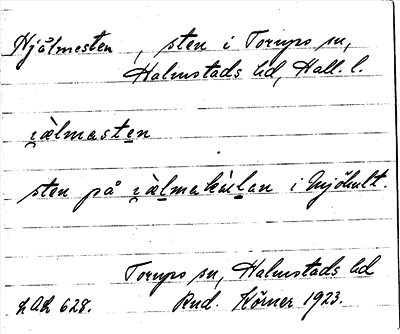 Hjälmesten, sten i Torups sn,
Halmstads hd, Hall. l.
i̯ælmasten
sten på i̯ælmakúlan i Mjöhult.
Torups sn, Halmstads hd
LAL 628. Rud. Körner 1923.